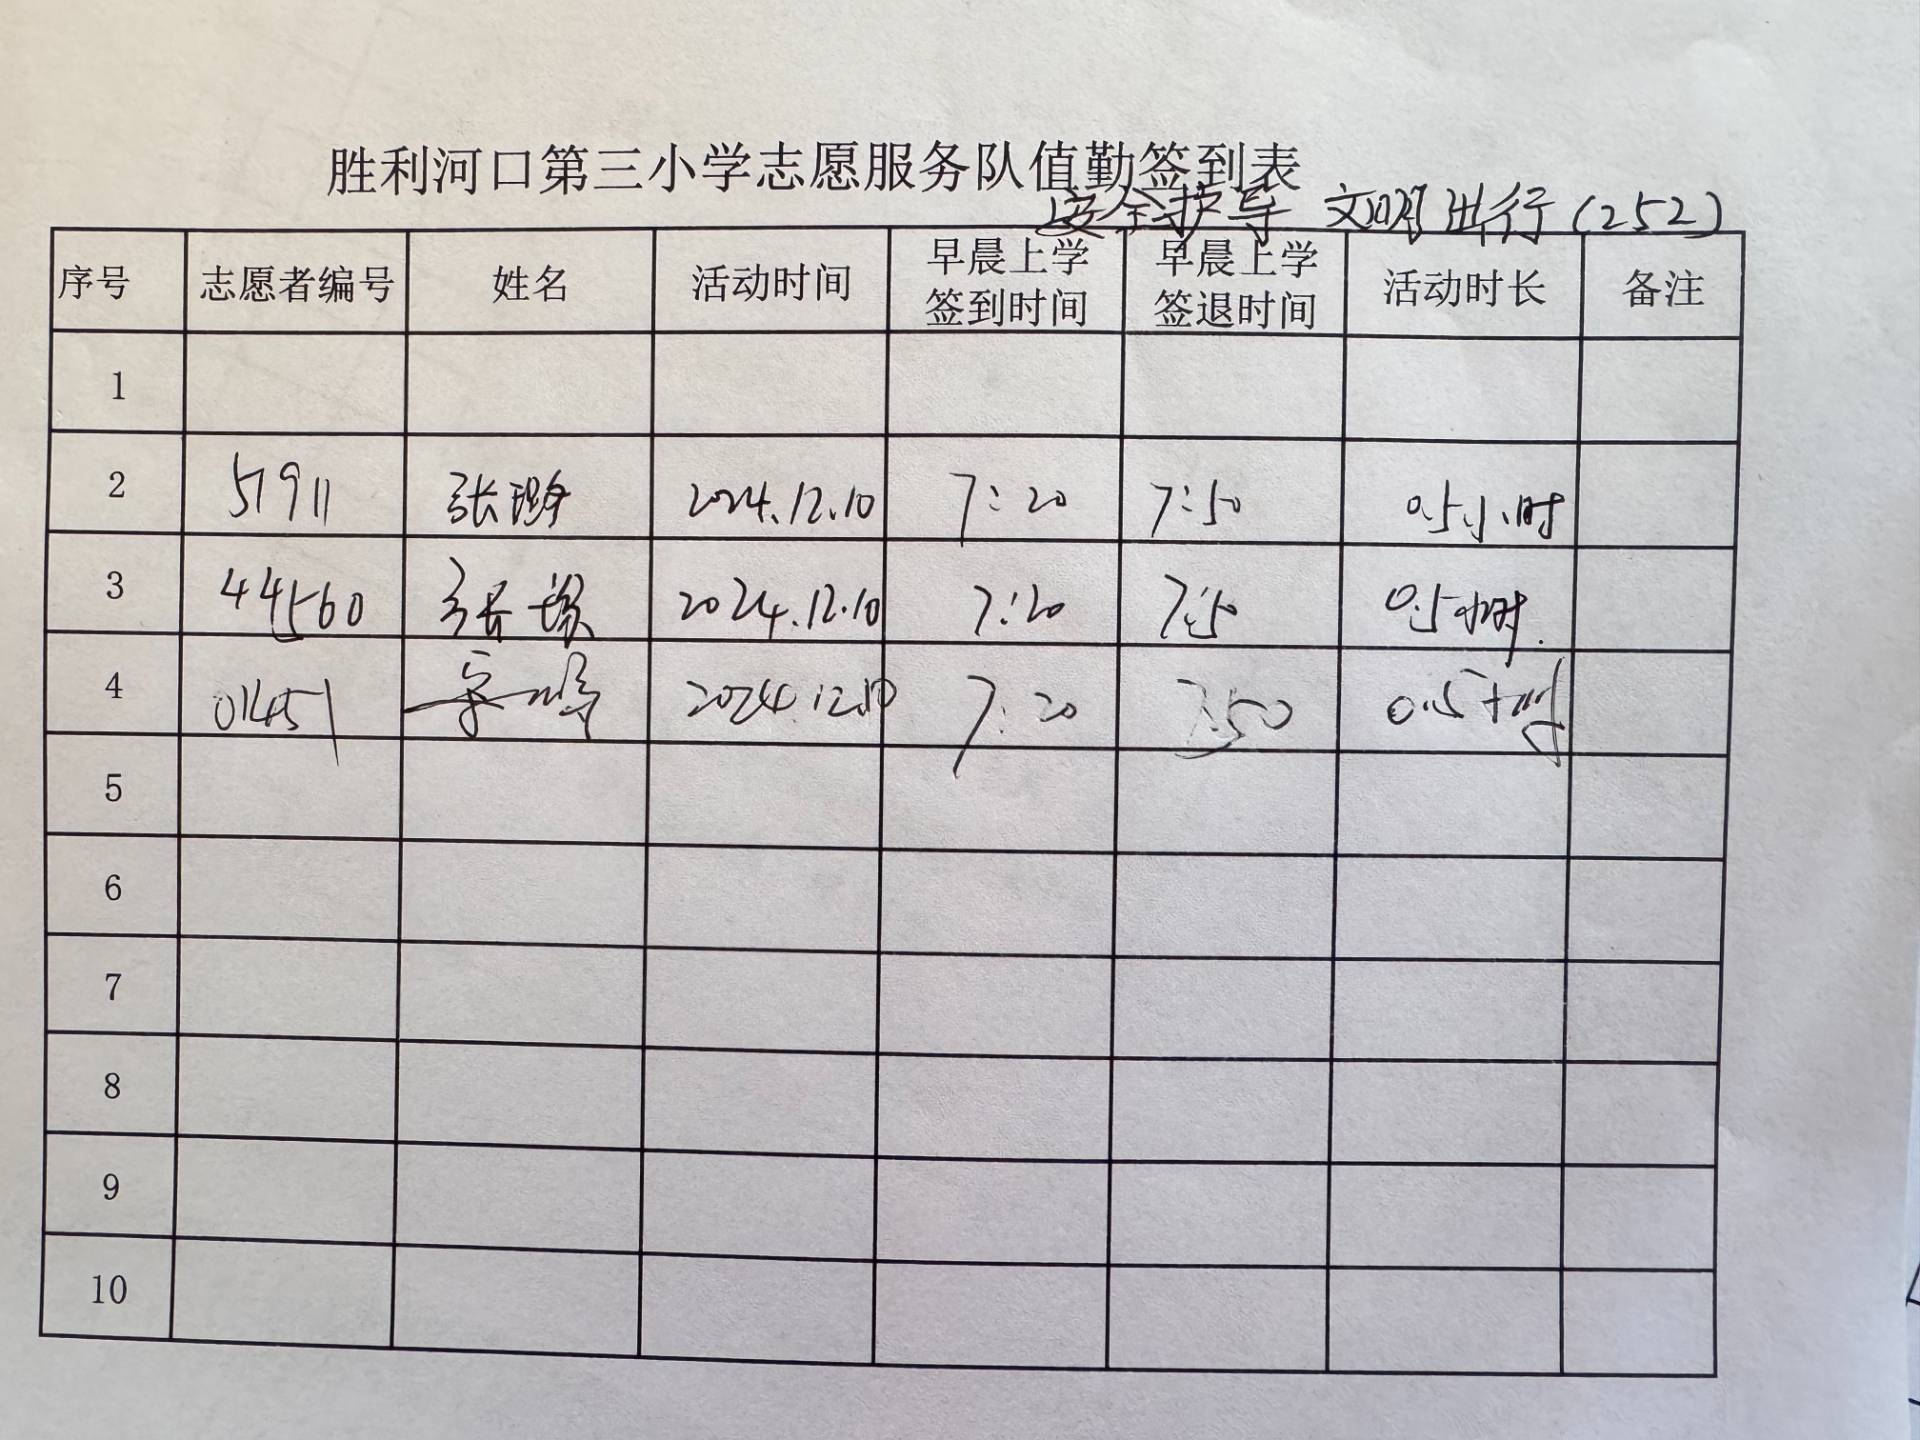 胜利河口第三小学志愿服务队值勤签到表
安全护导 文明出行(252)
序号 志愿者编号 姓名 活动时间 早晨上学签到时间 早晨上学签退时间 活动时长 备注
1
2 51911 张璐 2024.12.10 7:20 7:50 0.5小时
3 44560 张 2024.12.10 7:20 7:50 0.5小时.
4 01451 2024.12.10 7:20 7:50 0.5小时
5
6
7
8
9
10